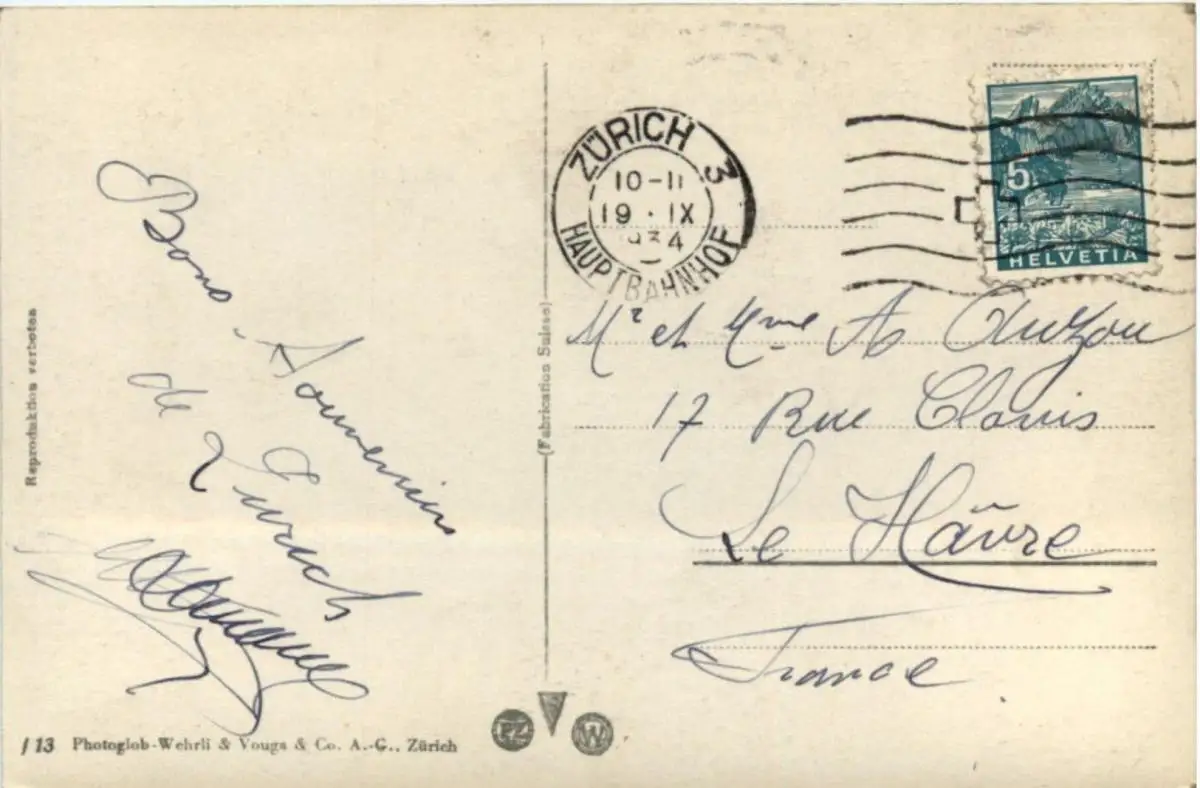 Reproduktion verboten
Bons Souvenirs
de
Zurich
/ 13 Photoglob-Wehrli & Vouga & Co. A.-G., Zürich
(Fabrication Suisse)
PZ
W
ZÜRICH 3
10-11
19 · IX
1934
HAUPTBAHNHOF
5
HELVETIA
Mr et Mme A Auzou
17 Rue Clovis
Le Hâvre
France